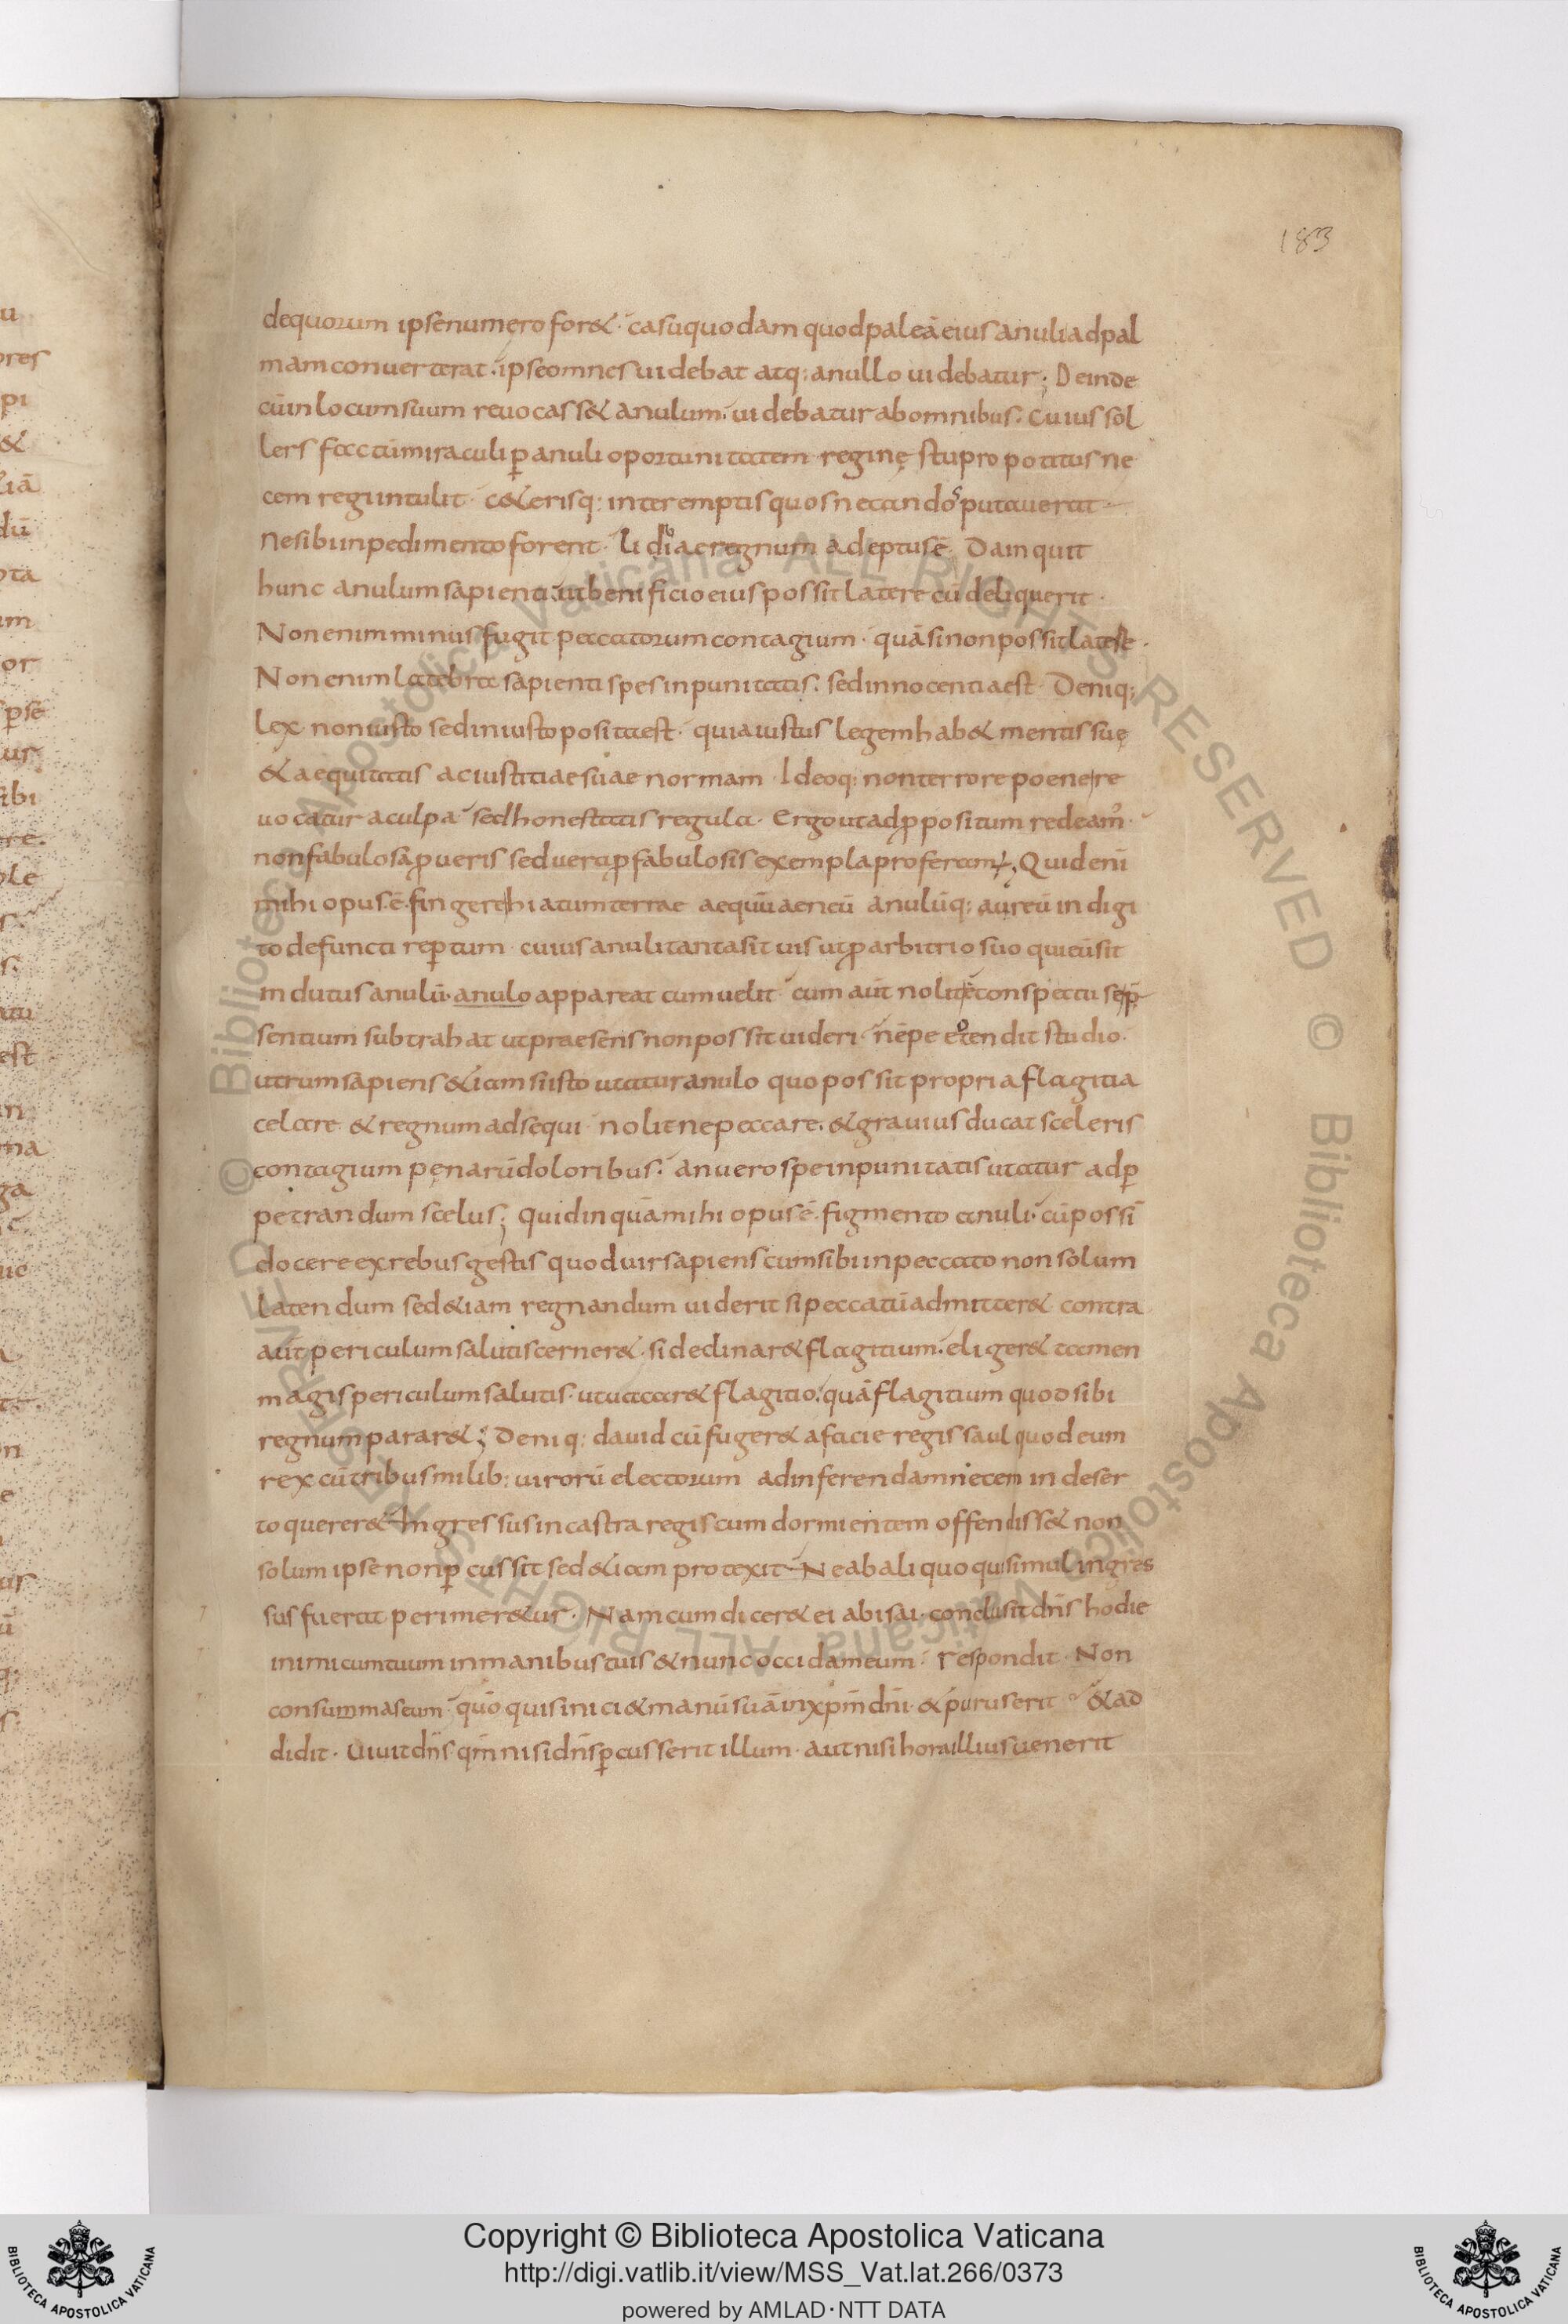 183
dequorum ipsenumero for&· casuquodam quodpaleā eius anuli adpal
mam conuerterat· ipseomnes uidebat atq; anullo uidebatur; Deinde
cūin locum suum reuocass& anulum· uidebatur abomnibus· Cuius sol
lers factūmiraculi p̱ anuli oportunitatem reginę stupro potitus ne
cem regi intulit· c&erisq; interemptis quos necandoˢ putauerat·
nesibi inpedimento forent· Li diae regnum adeptus ē· Da inquit
hunc anulum sapienti· ut benificio eius possit latere cū deliquerit·
Non enim minus fugit peccatorum contagium· quā si non possit
Non enim latebra sapienti spes inpunitatis· sed innocentia est· Deniq;
lex non iusto sed iniusto posita est· quia iustus legem hab& mentis suę
& aequitatis ac iustitiae suae normam Ideoq; non terrore poene re
uocatur aculpa sed honestatis regula· Ergo ut adp̱positum redeam᾿·
non fabulosa p̱ueris sed uera p̱fabulosis exempla proferam Quid enī
mihi opus ē· fingere hiatum terrae aequū aeneū anulūq; aureū in digi
to defuncti rep̱tum cuius anuli tanta sit uis ut p̱arbitrio suo qui eū sit
indutus anulū· anulo appareat cum uelit cum aūt nolit e conspectu se p̄
sentium subtrahat ut praesens non possit uideri· nēpe eo tendit studio·
utrum sapiens &iam si isto utatur anulo quo possit propria flagitia
celare & regnum adsequi nolitne peccare· & grauius ducat sceleris
contagium pęnarū doloribus· an uero spe inpunitatis utatur adp̱
petrandum scelus; Quid inquā mihi opus ē· figmento anuli· cū possī
docere ex rebus gestis quod uir sapiens cum sibi in peccato non solum
latendum sed &iam regnandum uiderit si peccatū admitter& contra
aūt periculum salutis cerner&· si declinar& flagitium· eliger& tamen
magis periculum salutis· ut uacar& flagitio· quā flagitium quod sibi
regnum parar&; Deniq; dauid cū fuger& afacie regis saul quod eum
rex cū tribus milib; uirorū electorum ad inferendam necem in deser
to querer& Ingressus in castra regis cum dormientem offendiss& non
solum ipse non p̱cussit sed &iam protexit Ne ab aliquo qui simul ingres
sus fuerat perimer&ur· Nam cum dicer& ei abisai· conclusit dn̄s hodie
inimicum tuum in manibus tuis & nunc occidam eum· respondit· Non
consummas eum· quō quis inici& manū suā in xp̄m dn̄i· & purus erit & ad
didit· Uiuit dn̄s· qm̄ nisi dn̄s p̱cusserit illum· aut nisi hora illius uenerit
© Biblioteca Apostolica Vaticana ALL RIGHTS RESERVED © Biblioteca Apostolica Vaticana ALL RIGHTS RESERVED
Copyright © Biblioteca Apostolica Vaticana
http://digi.vatlib.it/view/MSS_Vat.lat.266/0373
powered by AMLAD·NTT DATA
BIBLIOTECA APOSTOLICA VATICANA
BIBLIOTECA APOSTOLICA VATICANA